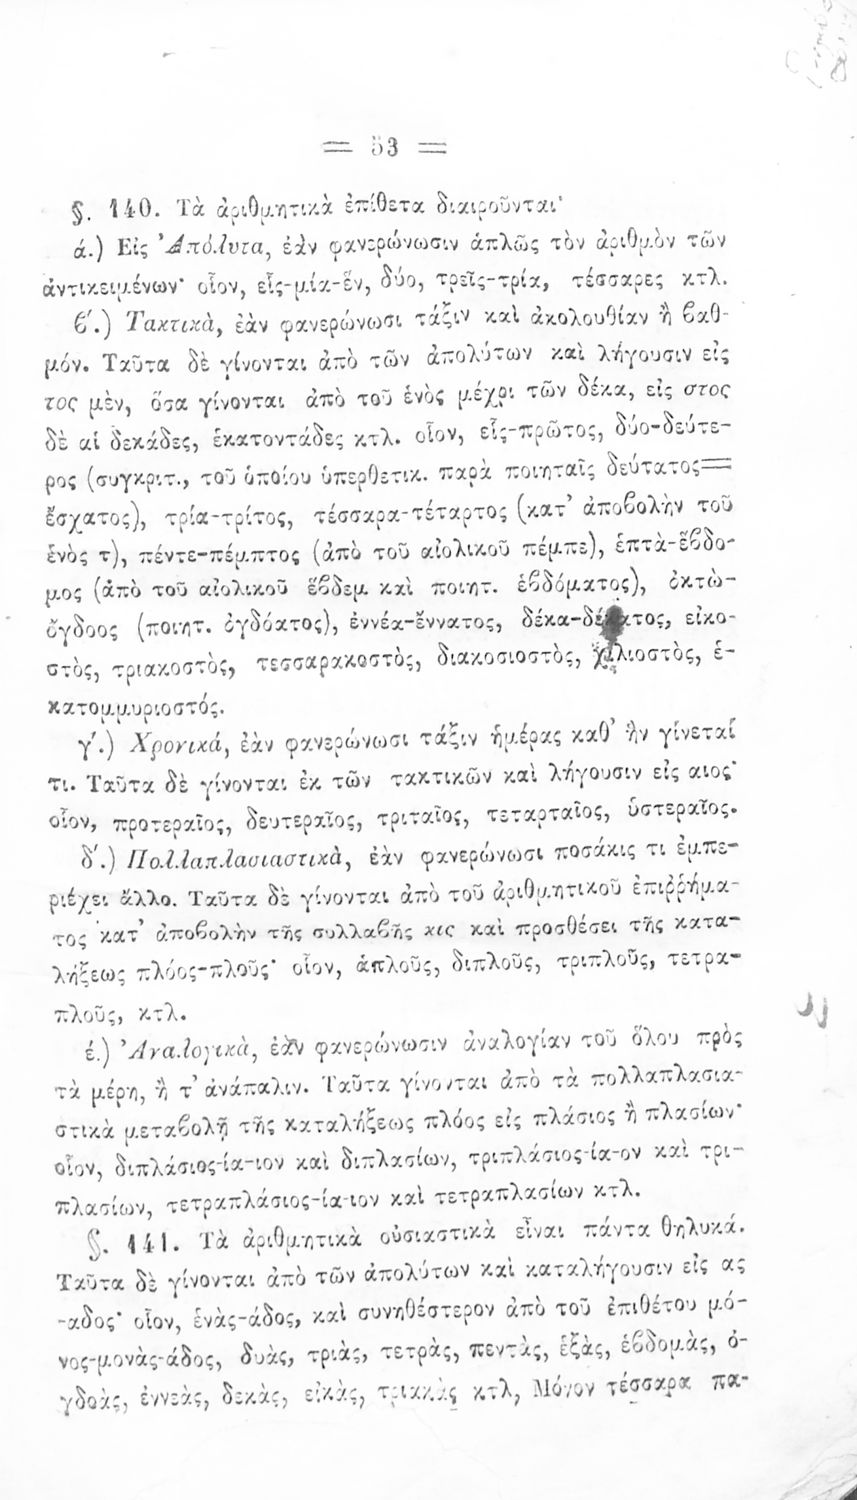 = 53 =
§. 140. Τὰ ἀριθμητικὰ ἐπίθετα διαιροῦνται·
ά.) Εἰς Ἀπόλυτα, ἐὰν φανερώνωσιν ἁπλῶς τὸν ἀριθμὸν τῶν
ἀντικειμένων· οἷον, εἷς-μία-ἕν, δύο, τρεῖς-τρία, τέσσαρες κτλ.
ϐ΄.) Τακτικὰ, ἐὰν φανερώνωσι τάξιν καὶ ἀκολουθίαν ἢ ϐαθ-
μόν. Ταῦτα δὲ γίνονται ἀπὸ τῶν ἀπολύτων καὶ λήγουσιν εἰς
τος μὲν, ὅσα γίνονται ἀπὸ τοῦ ἑνὸς μέχρι τῶν δέκα, εἰς στος
δὲ αἱ δεκάδες, ἑκατοντάδες κτλ. οἷον, εἷς-πρῶτος, δύο-δεύτε-
ρος (συγκριτ., τοῦ ὁποίου ὑπερθετικ. παρὰ ποιηταῖς δεύτατος=
ἔσχατος), τρία-τρίτος, τέσσαρα-τέταρτος (κατ’ ἀποϐολὴν τοῦ
ἑνὸς τ), πέντε-πέμπτος (ἀπὸ τοῦ αἰολικοῦ πέμπε), ἑπτὰ-ἕϐδο-
μος (ἀπὸ τοῦ αἰολικοῦ ἕϐδεμ καὶ ποιητ. ἑϐδόματος), ὀκτὼ-
ὄγδοος (ποιητ. ὀγδόατος), ἐννέα-ἔννατος, δέκα-δέκατος, εἰκο-
στὸς, τριακοστὸς, τεσσαρακοστὸς, διακοσιοστὸς, χιλιοστὸς, ἑ-
κατομμυριοστός.
γ΄.) Χρονικά, ἐὰν φανερώνωσι τάξιν ἡμέρας καθ’ ἣν γίνεταί
τι. Ταῦτα δὲ γίνονται ἐκ τῶν τακτικῶν καὶ λήγουσιν εἰς αιος·
οἷον, προτεραῖος, δευτεραῖος, τριταῖος, τεταρταῖος, ὑστεραῖος.
δ΄.) Πολλαπλασιαστικὰ, ἐὰν φανερώνωσι ποσάκις τι ἐμπε-
ριέχει ἄλλο. Ταῦτα δὲ γίνονται ἀπὸ τοῦ ἀριθμητικοῦ ἐπιῤῥήμα-
τος κατ’ ἀποϐολὴν τῆς συλλαϐῆς κις καὶ προσθέσει τῆς κατα-
λήξεως πλόος-πλοῦς· οἷον, ἁπλοῦς, διπλοῦς, τριπλοῦς, τετρα-
πλοῦς, κτλ.
έ.) Ἀναλογικὰ, ἐὰν φανερώνωσιν ἀναλογίαν τοῦ ὅλου πρὸς
τὰ μέρη, ἢ τ’ ἀνάπαλιν. Ταῦτα γίνονται ἀπὸ τὰ πολλαπλασια-
στικὰ μεταϐολῇ τῆς καταλήξεως πλόος εἰς πλάσιος ἢ πλασίων·
οἷον, διπλάσιος-ία-ιον καὶ διπλασίων, τριπλάσιος-ία-ον καὶ τρι-
πλασίων, τετραπλάσιος-ία-ιον καὶ τετραπλασίων κτλ.
§. 141. Τὰ ἀριθμητικὰ οὐσιαστικὰ εἶναι πάντα θηλυκά.
Ταῦτα δὲ γίνονται ἀπὸ τῶν ἀπολύτων καὶ καταλήγουσιν εἰς ας
-αδος· οἷον, ἑνὰς-άδος, καὶ συνηθέστερον ἀπὸ τοῦ ἐπιθέτου μό-
νος-μονὰς-άδος, δυὰς, τριὰς, τετρὰς, πεντὰς, ἑξὰς, ἑϐδομὰς, ὀ-
γδοὰς, ἐννεὰς, δεκὰς, εἰκὰς, τριακὰς κτλ, Μόνον τέσσαρα πα-